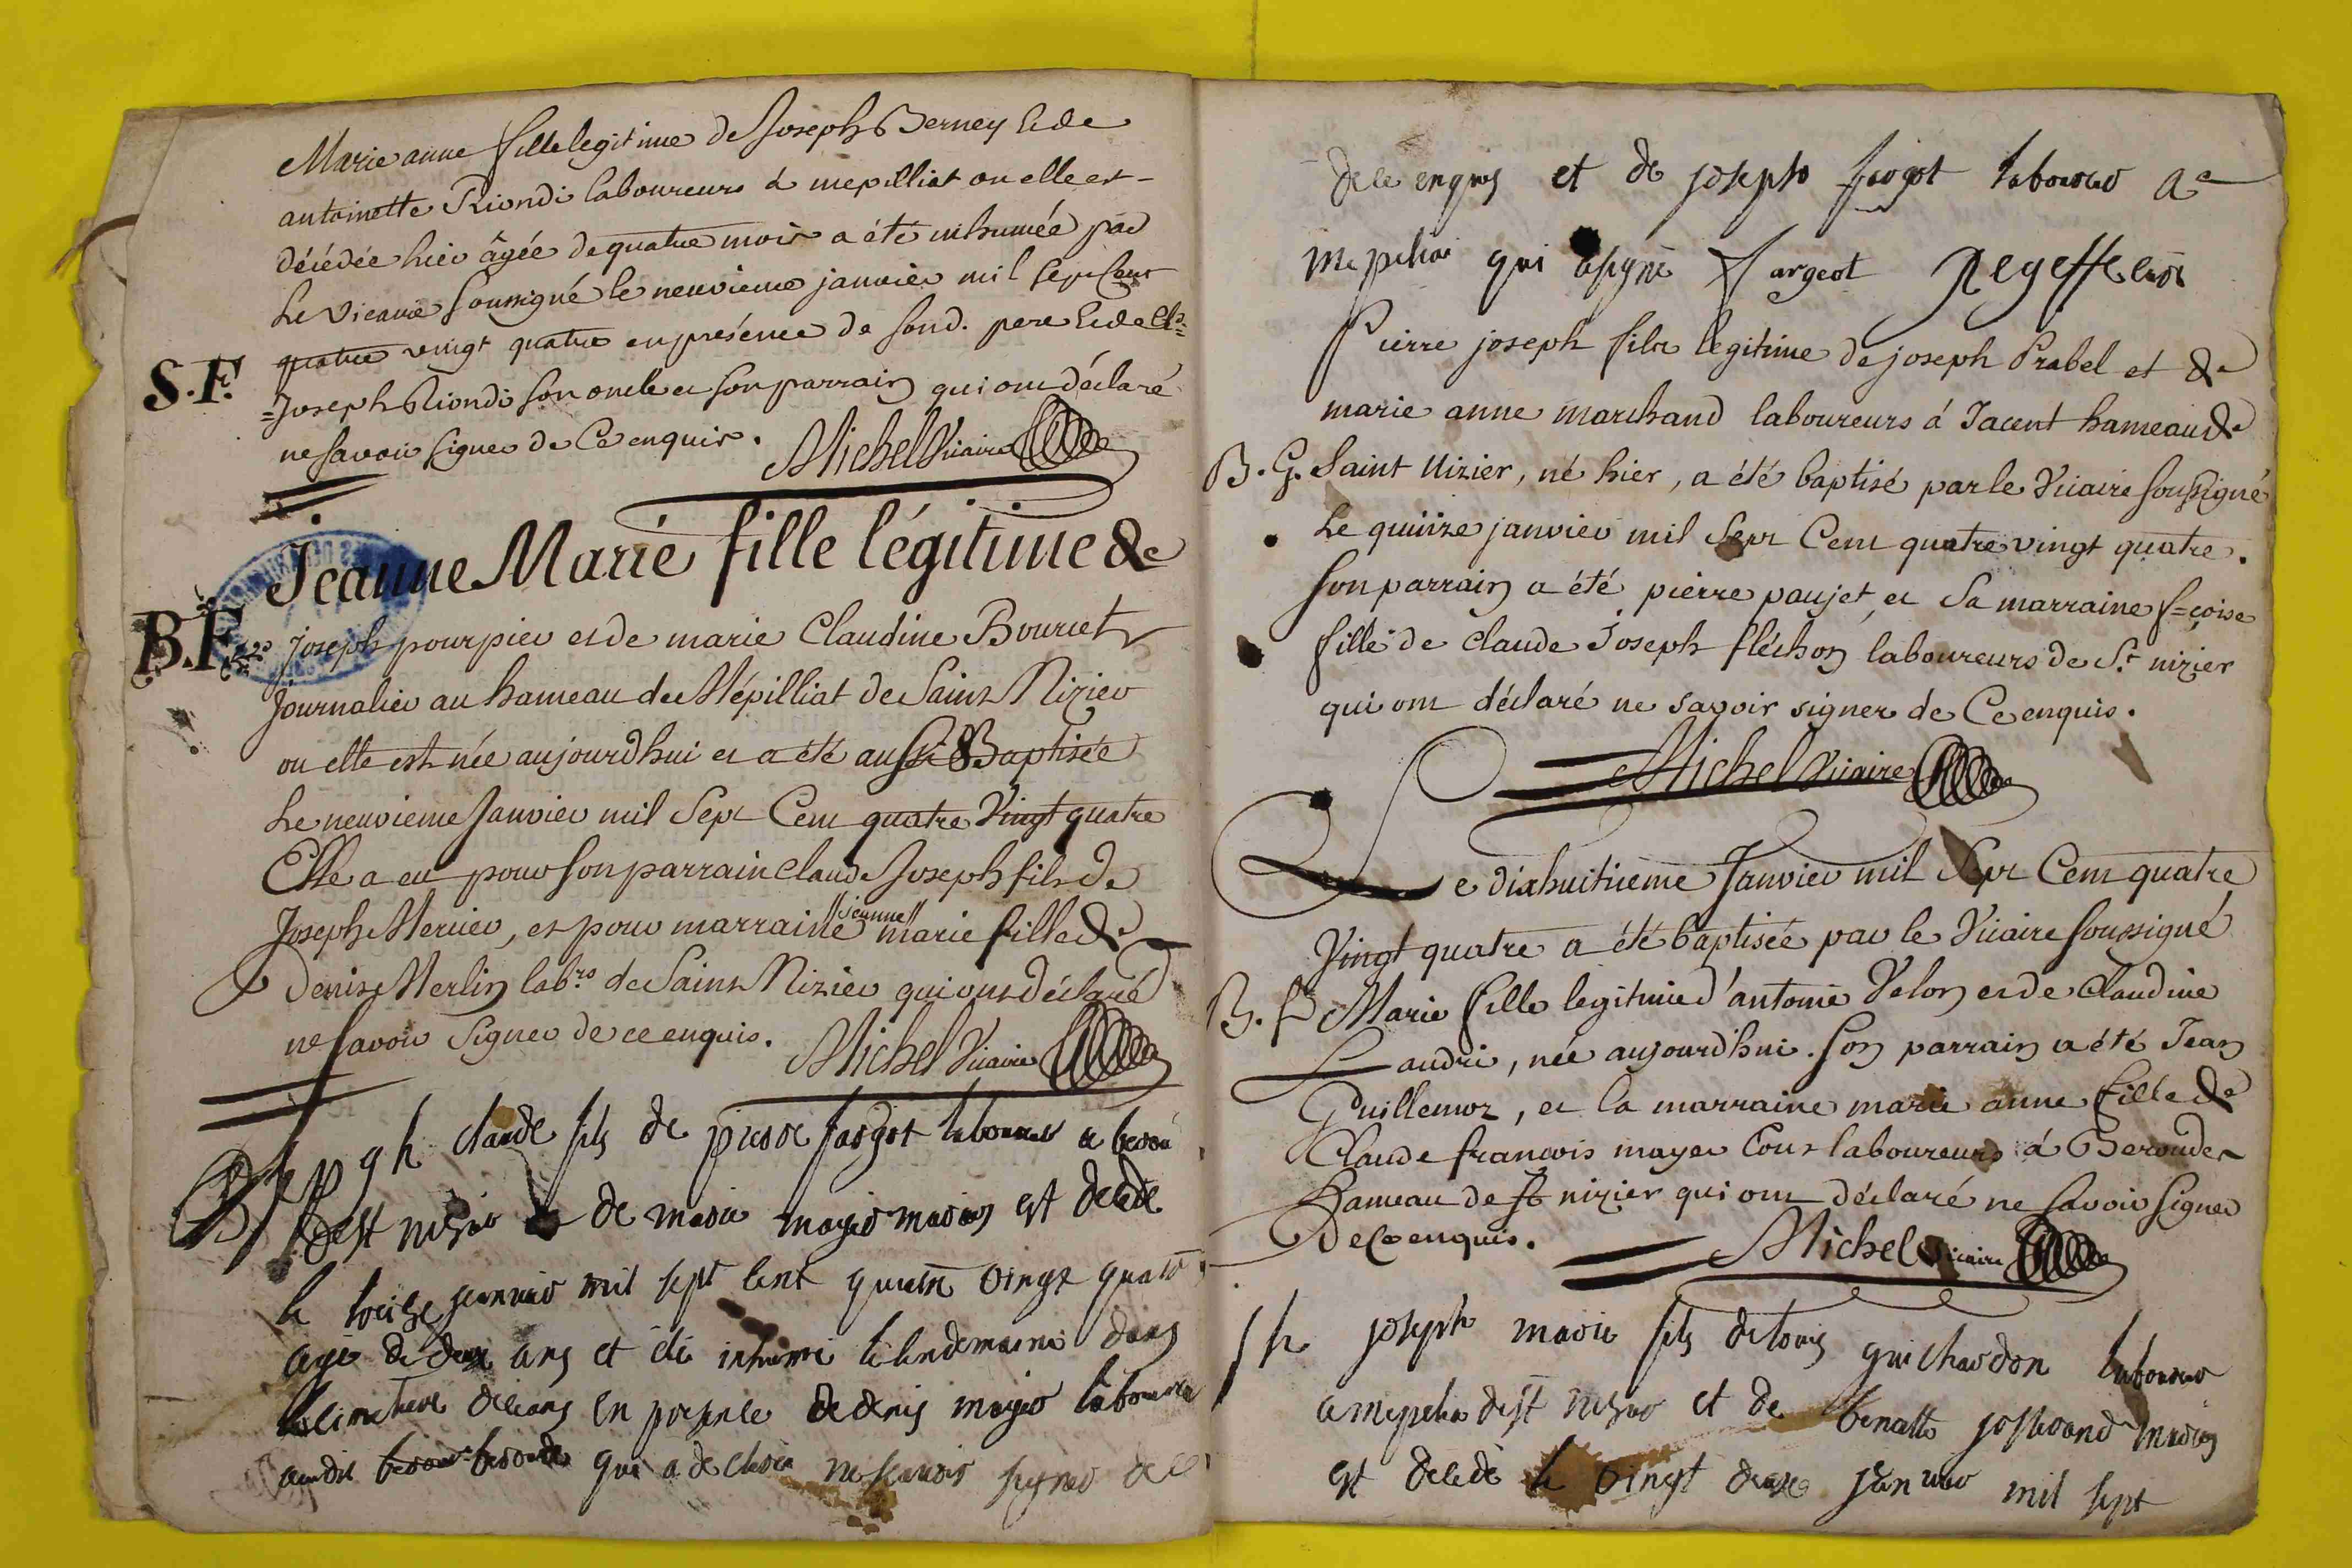 Marie anne fille legitime de Joseph Berney et de
antoinette Riondi laboureurs à mepilliat ou elle est
décédée hier âgée de quatre mois a été inhumée par
Le Vicaire soussigné le neuvieme janvier mil Sept Cent
quatre vingt quatre en présence de sond. pere et de Cl.
S.F. =Joseph Riondi son oncle et son parrain qui ont déclaré
ne Savoir signer de Ce enquis.
Michel Vicaire
Jeanne Marie fille légitime de
B.F. Joseph pourpier et de marie Claudine Bourcet
Journalier au hameau de Mépilliat de Saint Nizier
ou elle est née aujourdhui et a été aussi Baptisée
Le neuvieme Janvier mil Sept Cent quatre Vingt quatre
Elle a eu pour son parrain claude Joseph fils de
Joseph Mercier, et pour marraine jeanne marie fille de
Denis Merlin lab.rs de Saint Nizier qui ont déclaré
ne Savoir Signer de ce enquis.
Michel Vicaire
claude fils de pierre fargot laboureur a
de st nizier de marie mayer maries est decede
le treize janvier mil sept cent quatre vingt quatre
age de deux ans et été inhumé le lendemaine dans
le cimetiere deceans en presence de denis mayer laboureur
audit qui a declaré ne scavoir signer de ce
dece enquis et de joseph fargot laboureur a
mepeliat qui a signé fargeot
Pierre joseph fils legitime de joseph Prabel et de
marie anne marchand laboureurs á Jacent hameau de
B. G. Saint Nizier, né hier, a été baptisé par le Vicaire soussigné
Le quinze janvier mil Sept Cent quatre vingt quatre.
Son parrain a été pierre paujet, et Sa marraine f=çoise
fille de Claude Joseph fléchon laboureurs de St nizier
qui ont déclaré ne savoir signer de Ce enquis.
Michel Vicaire
Le dixhuitieme Janvier mil Sept Cent quatre
Vingt quatre a été baptisée par le Vicaire soussigné
B. f Marie fille legitime d'antoine Velon et de Claudine
Landri, née aujourd'hui. Son parrain a été Jean
Guillemoz, et la marraine marie anne fille de
Claude francois mayer tous laboureurs á Beroudes
hameau de st nizier qui ont déclaré ne Savoir signer
De Ce enquis.
Michel Vicaire
Sh joseph marie fils de louis guichardon laboureur
a mepelia de st nizier et de benoitte maries
est decedé le vingt deux janvier mil sept